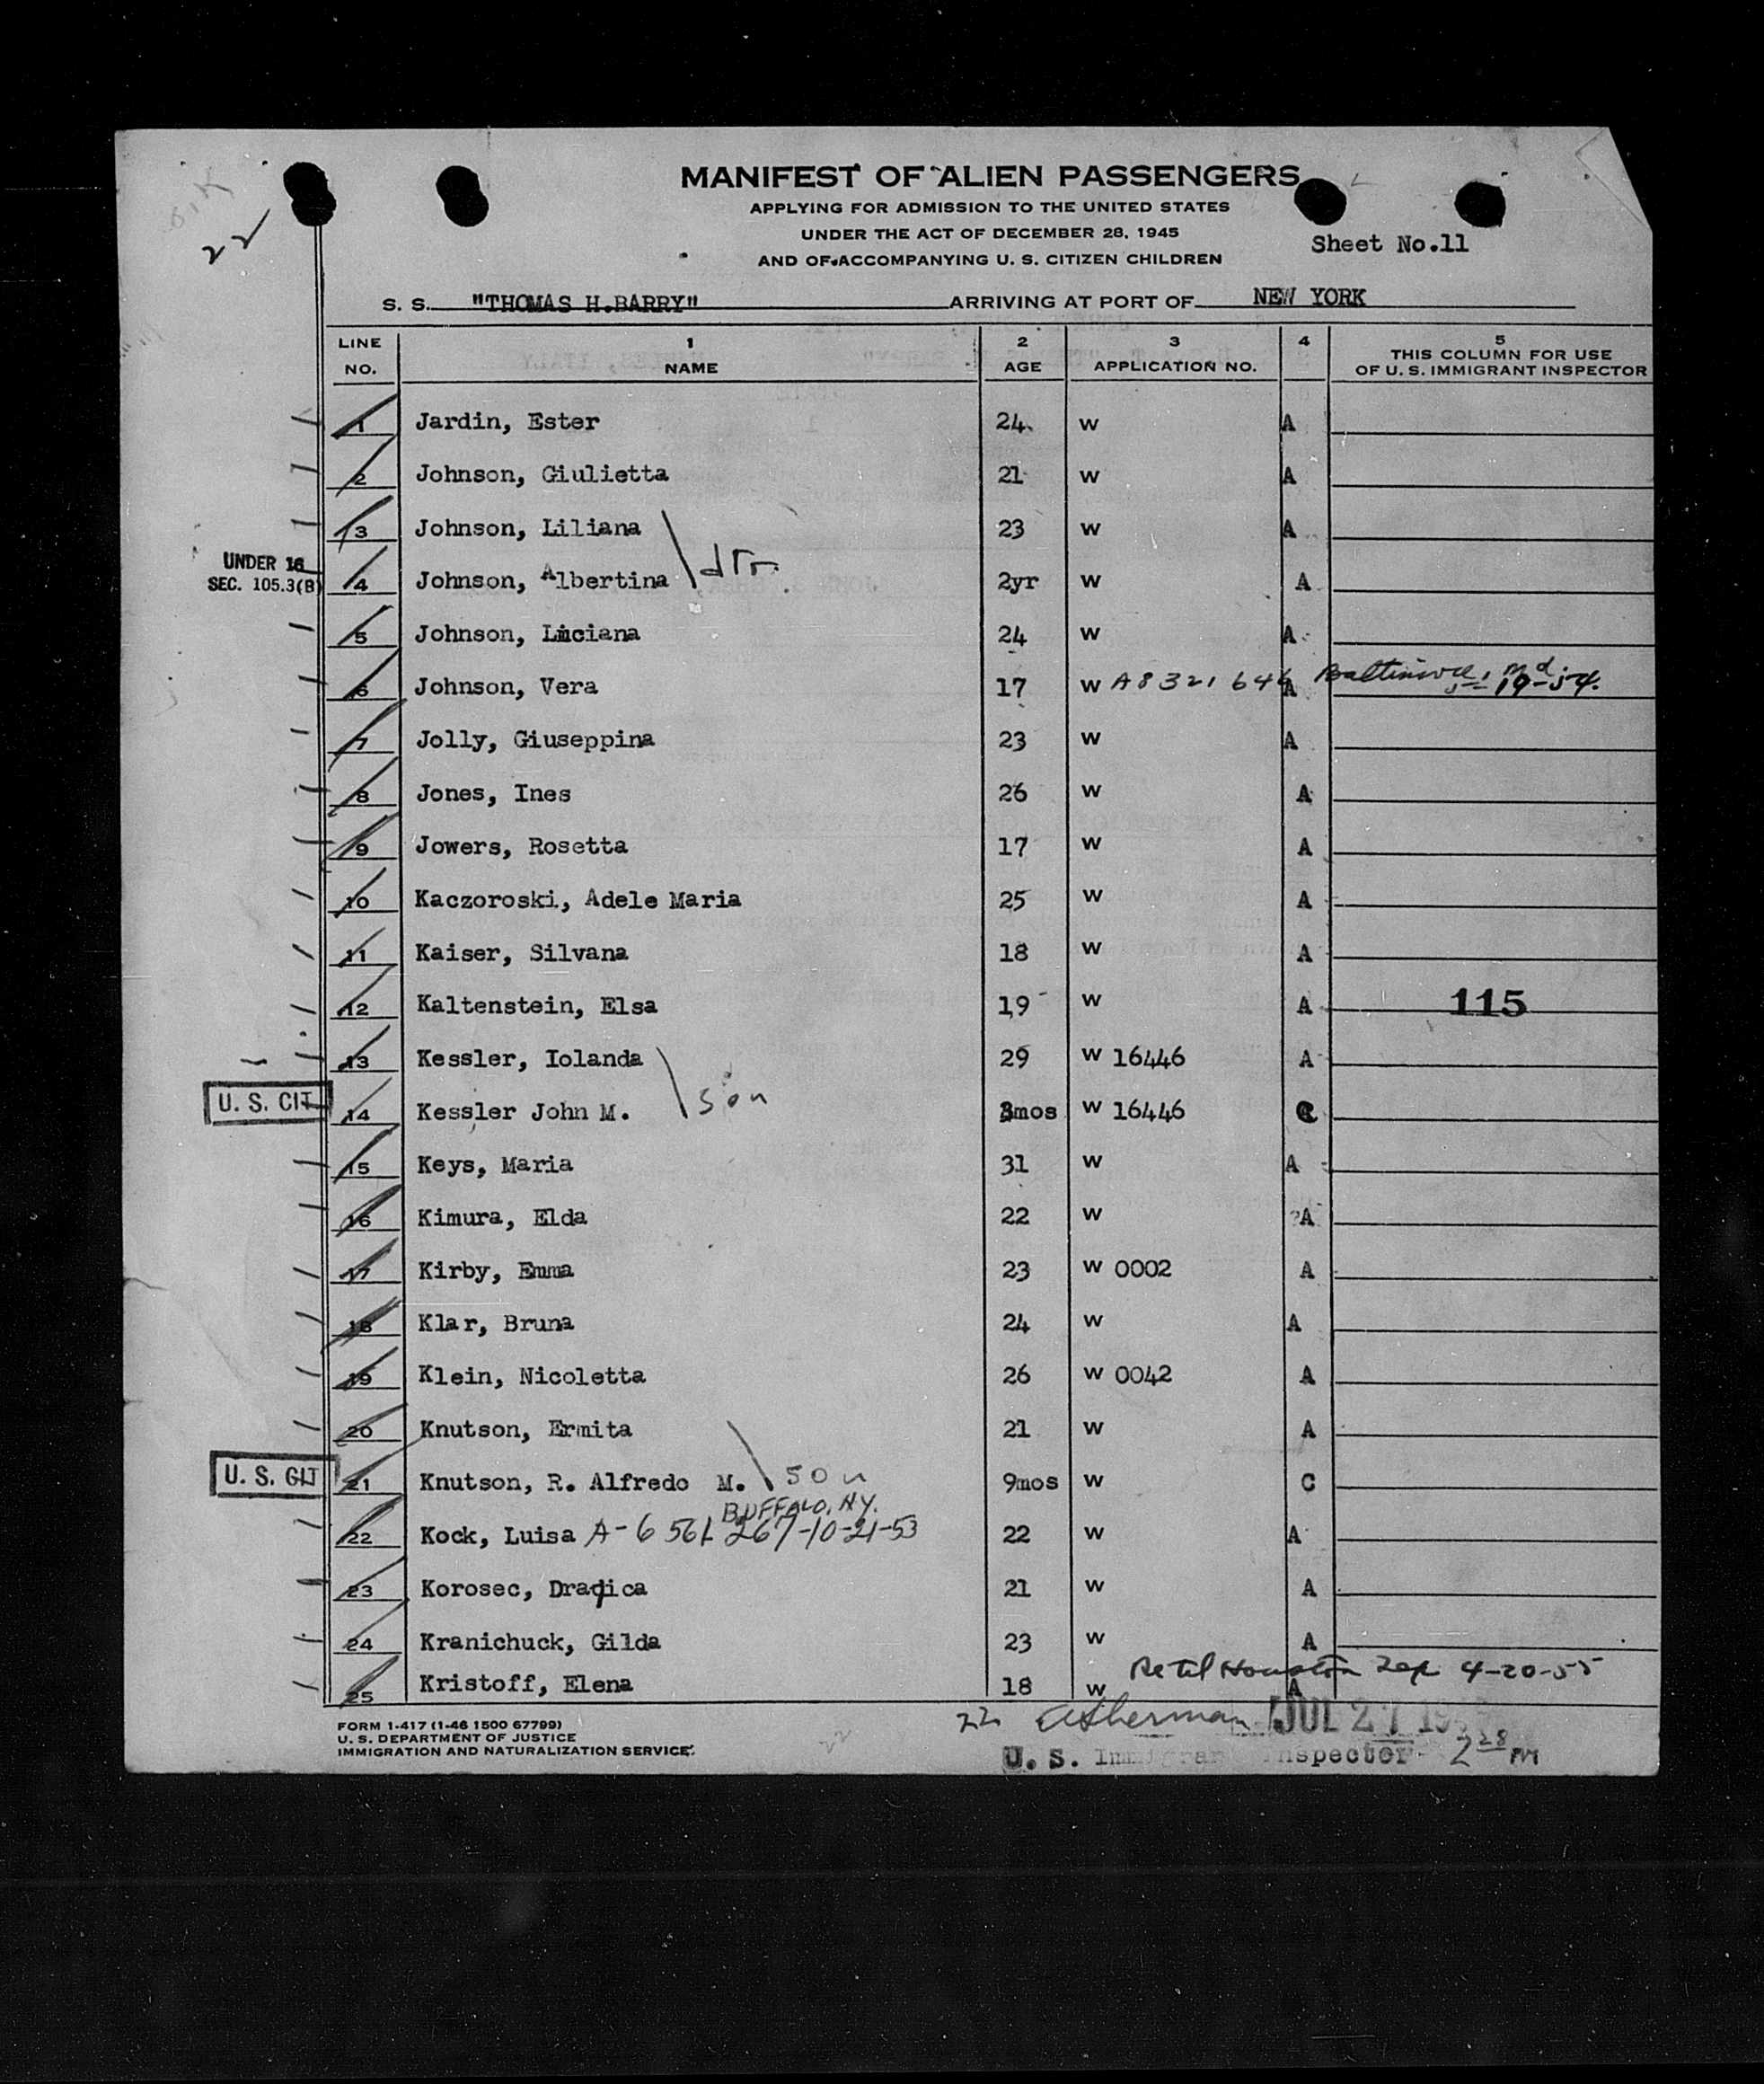 22
MANIFEST OF ALIEN PASSENGERS
APPLYING FOR ADMISSION TO THE UNITED STATES
UNDER THE ACT OF DECEMBER 28, 1945
AND OF ACCOMPANYING U. S. CITIZEN CHILDREN
Sheet No.11
S. S. "THOMAS H.BARRY" ARRIVING AT PORT OF NEW YORK
LINE NO. 1 NAME 2 AGE 3 APPLICATION NO. 4 5 THIS COLUMN FOR USE OF U. S. IMMIGRANT INSPECTOR
1 Jardin, Ester 24 W A
2 Johnson, Giulietta 21 W A
3 Johnson, Liliana 23 W A
UNDER 16 SEC. 105.3(B) 4 Johnson, Albertina dtr. 2yr W A
5 Johnson, Luciana 24 W A
6 Johnson, Vera 17 W A8321646 A Baltimore, Md 5-19-54.
7 Jolly, Giuseppina 23 W A
8 Jones, Ines 26 W A
9 Jowers, Rosetta 17 W A
10 Kaczoroski, Adele Maria 25 W A
11 Kaiser, Silvana 18 W A
12 Kaltenstein, Elsa 19 W A 115
13 Kessler, Iolanda 29 W 16446 A
U. S. CIT 14 Kessler John M. son 3mos W 16446 C
15 Keys, Maria 31 W A
16 Kimura, Elda 22 W A
17 Kirby, Emma 23 W 0002 A
18 Klar, Bruna 24 W A
19 Klein, Nicoletta 26 W 0042 A
20 Knutson, Ermita 21 W A
U. S. CIT 21 Knutson, R. Alfredo M. son 9mos W C
BUFFALO, NY.
22 Kock, Luisa A-6 561 267-10-21-53 22 W A
23 Korosec, Dragica 21 W A
24 Kranichuck, Gilda 23 W A
Houston 4-20-55
25 Kristoff, Elena 18 W A
FORM I-417 (1-46 1500 67799)
U. S. DEPARTMENT OF JUSTICE
IMMIGRATION AND NATURALIZATION SERVICE.
22 JUL 27
U. S. Immigrant Inspector 2 28 PM